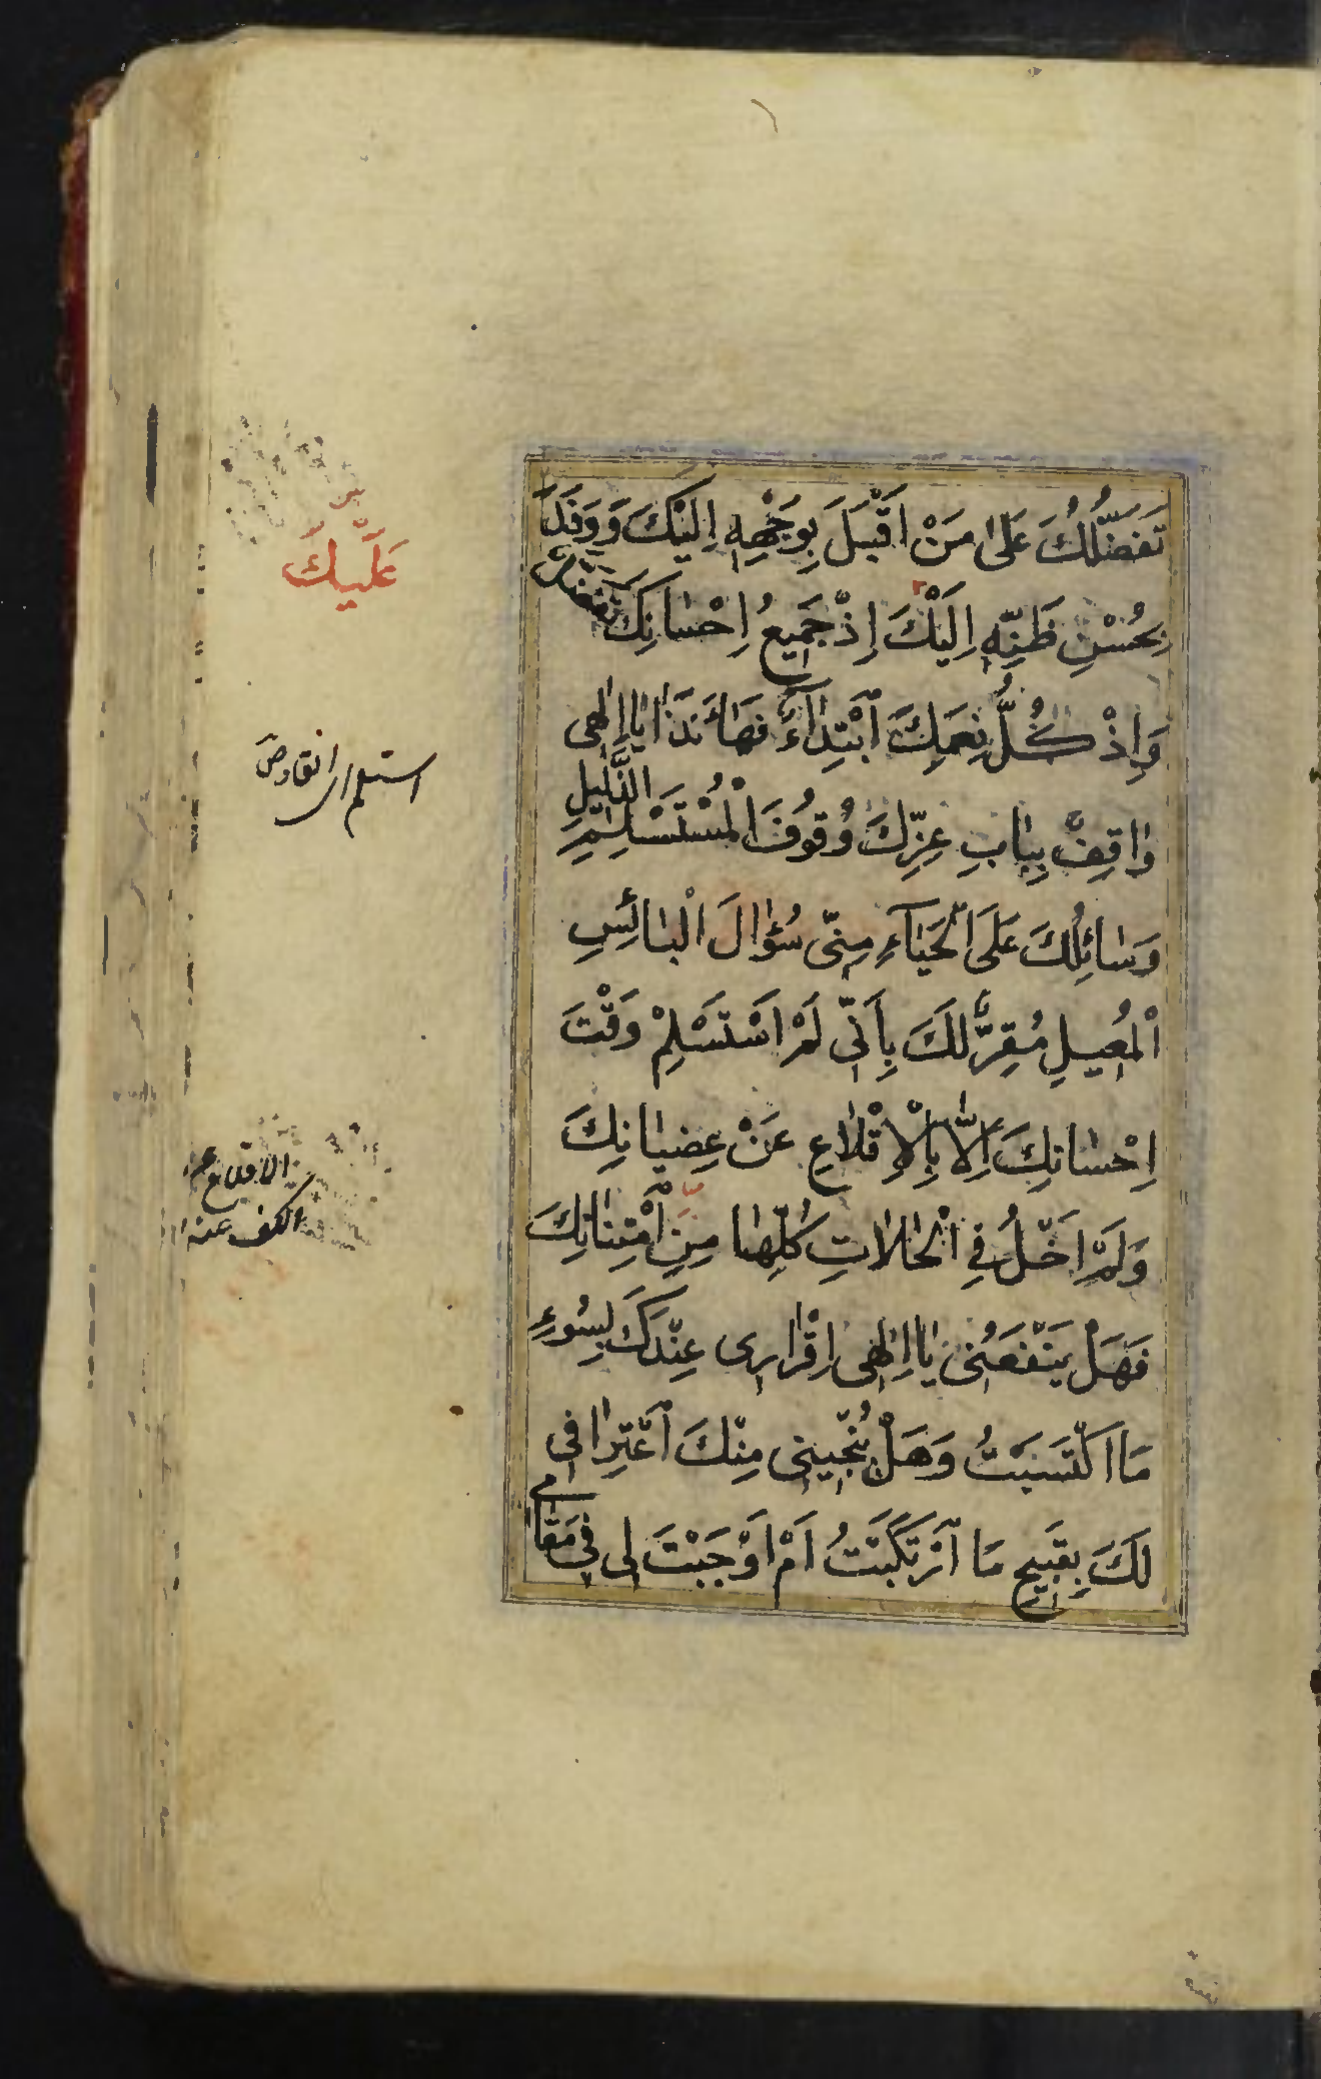 تَفَضُّلُكَ عَلىٰ مَنْ اَقْبَلَ بِوَجْهِهِ اِلَيْكَ وَوَفَدَ
بِحُسْنِ ظَنِّهِ اِلَيْكَ إِذْ جَمِيعُ اِحْسٰانِكَ تَفَضُّلٌ
وَاِذْ كُلُّ نِعَمِكَ ابْتِدٰآءٌ فَهٰا اَنَذٰا يٰا اِلٰهى
وٰاقِفٌ بِبٰابِ عِزِّكَ وُقُوفَ الْمُسْتَسْلِمِ الذَّلِيلِ
وَسٰائِلُكَ عَلَى الْحَيٰآءِ مِنّى سُؤٰالَ الْبٰائِسِ
الْمُعِيلِ مُقِرٌّ لَكَ بِاَنّى لَمْ اَسْتَسْلِمْ وَقْتَ
اِحْسٰانِكَ اِلّٰا بِالْاِقْلٰاعِ عَنْ عِصْيٰانِكَ
وَلَمْ اَخْلُ فِى الْحٰالٰاتِ كُلِّهٰا مِنِ امْتِنٰانِكَ
فَهَلْ يَنْفَعُنى يٰا اِلٰهى اِقْرٰارى عِنْدَكَ بِسُوءِ
مَا اكْتَسَبْتُ وَهَلْ يُنْجِينى مِنْكَ اعْتِرٰافى
لَكَ بِقَبِيحِ مَا ارْتَكَبْتُ اَمْ اَوْجَبْتَ لى فى مَقٰامى
عَلَيْكَ
استسلم اى انقاد
الاقلاع عن
الكف عنه